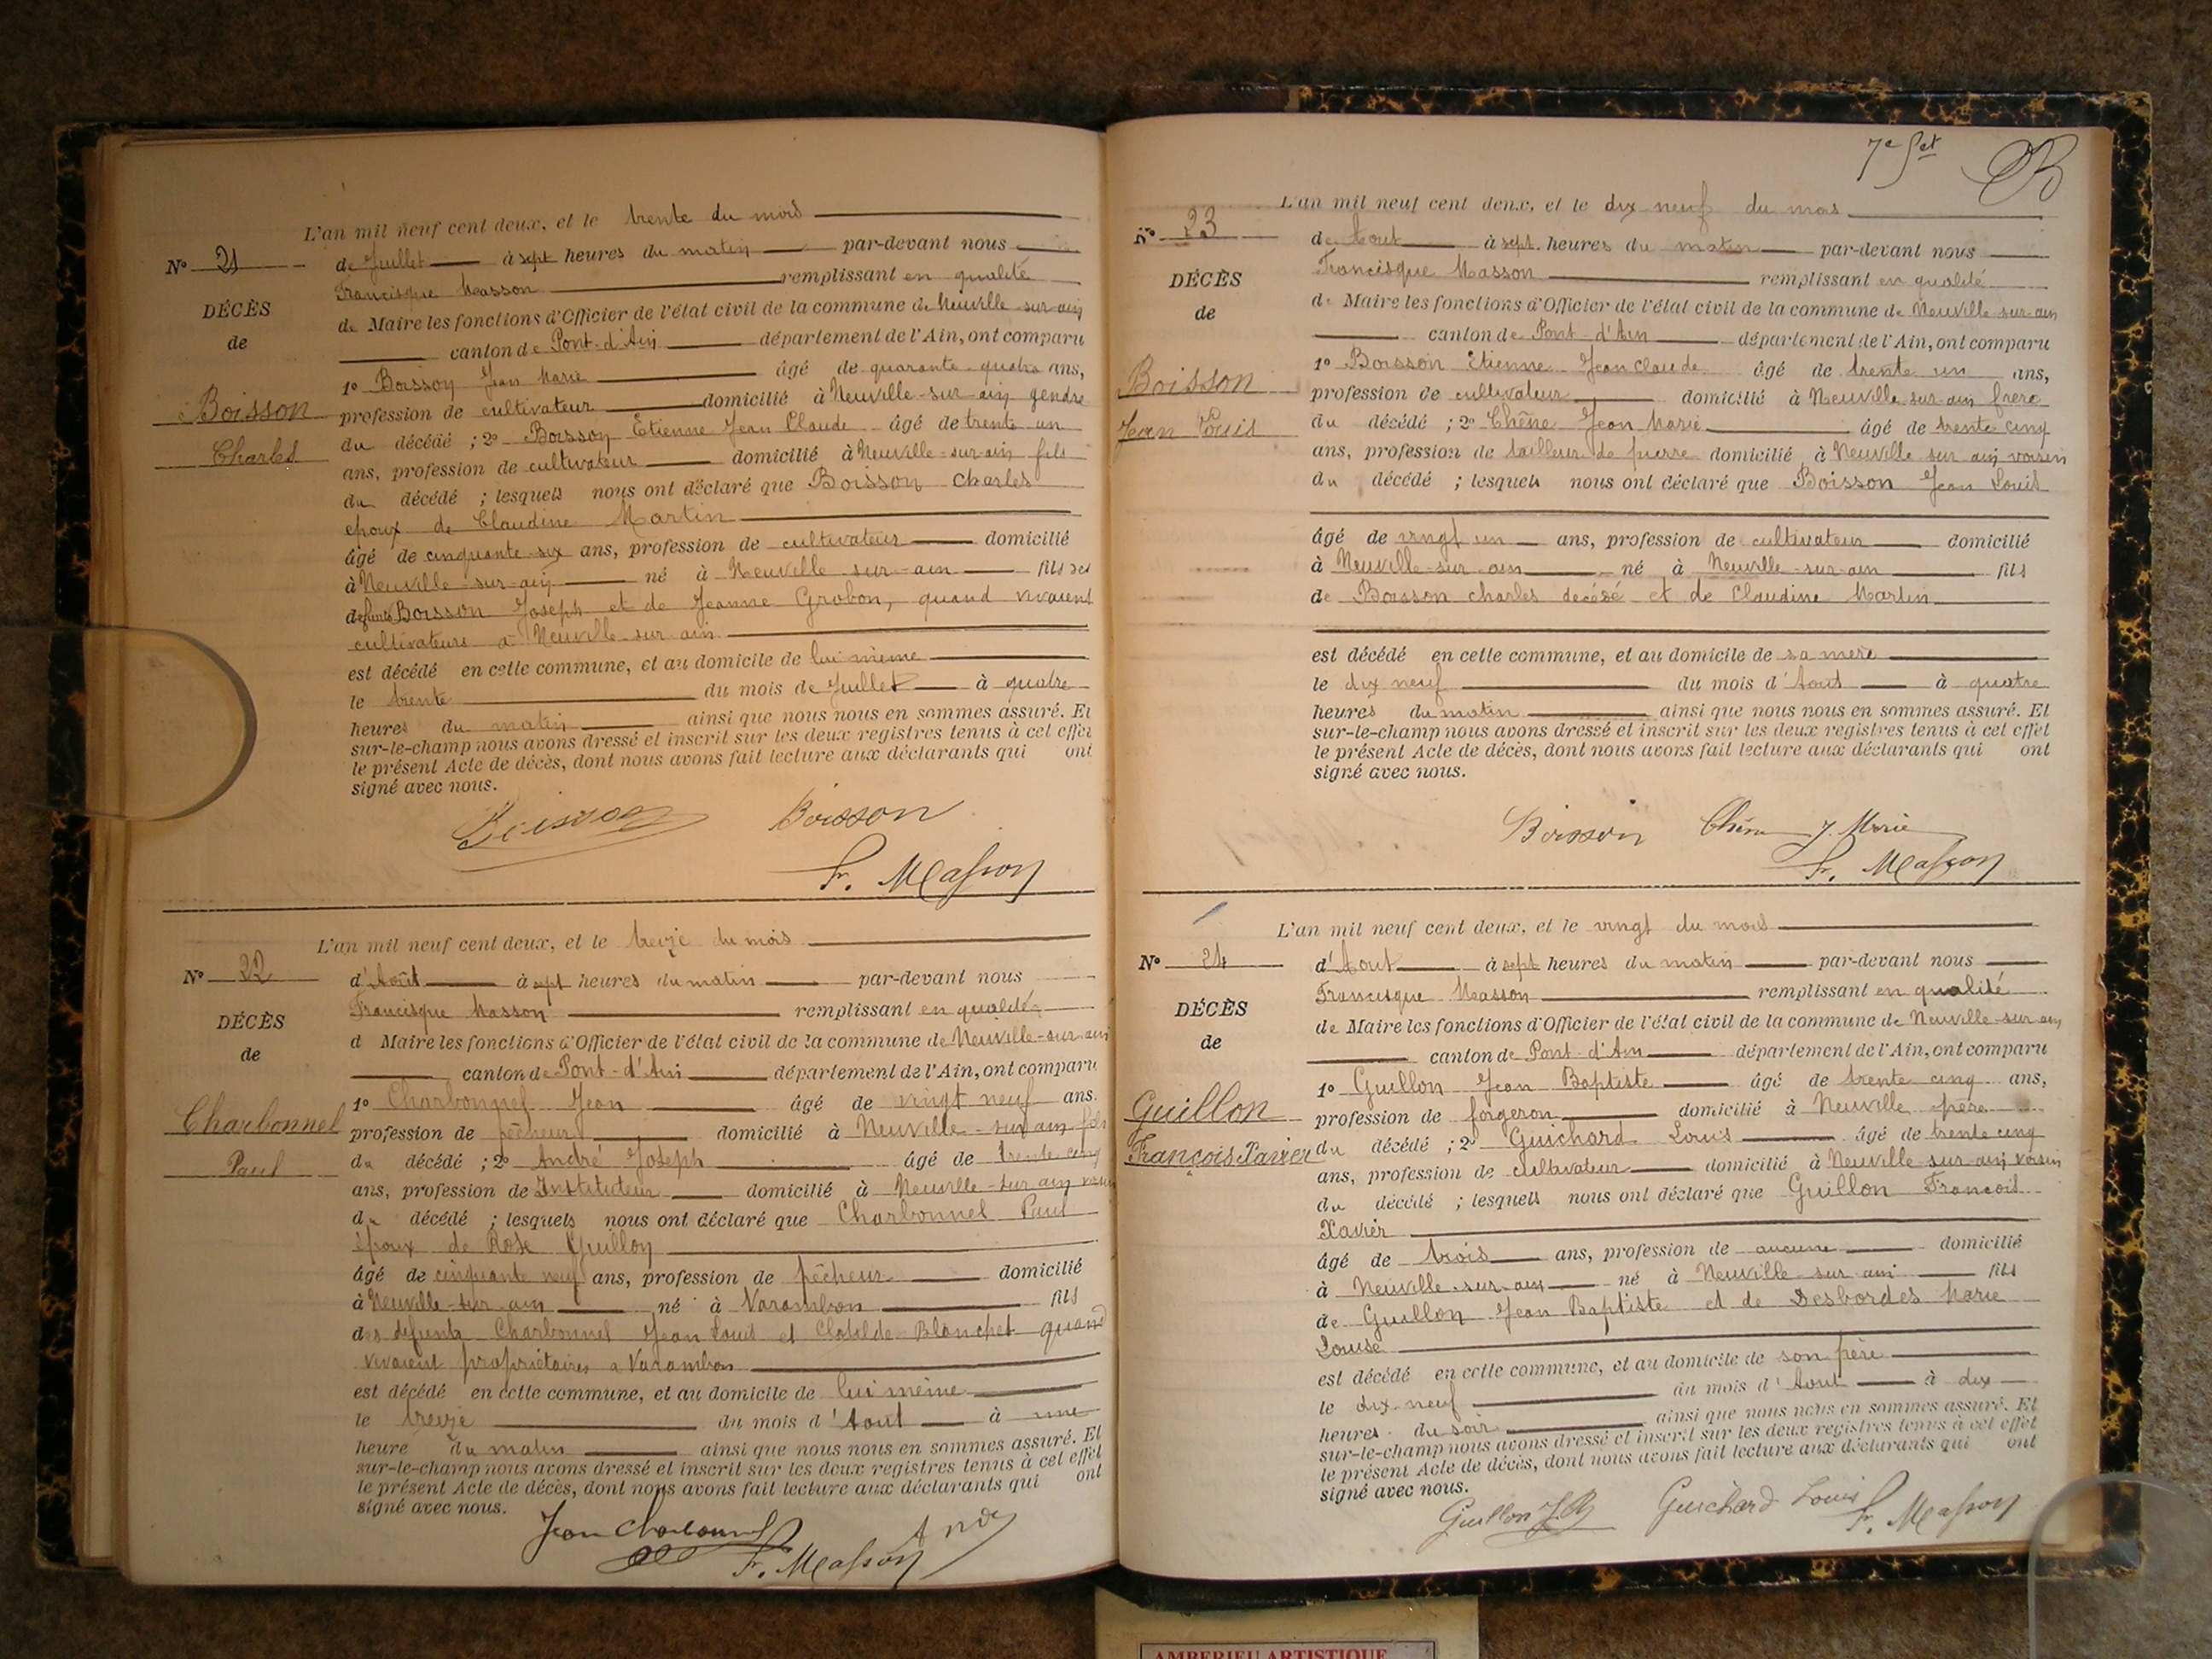 L'an mil neuf cent deux, et le trente du mois
N° 21
de Juillet à sept heures du matin par-devant nous
Francisque Masson remplissant en qualité
DÉCÈS
de Maire les fonctions d'Officier de l'état civil de la commune de Neuville-sur-ain
de
canton de Pont-d'Ain département de l'Ain, ont comparu
1° Boisson Jean Marie âgé de quarante-quatre ans,
Boisson
profession de cultivateur domicilié à Neuville-sur-ain gendre
Charles
du décédé ; 2° Boisson Etienne Jean Claude âgé de trente un
ans, profession de cultivateur domicilié à Neuville-sur-ain fils
du décédé ; lesquels nous ont déclaré que Boisson Charles
époux de Claudine Martin
âgé de cinquante-six ans, profession de cultivateur domicilié
à Neuville-sur-ain né à Neuville-sur-ain fils des
defunts Boisson Joseph et de Jeanne Grobon, quand vivaient
cultivateurs à Neuville-sur-ain
est décédé en cette commune, et au domicile de lui même
le trente du mois de Juillet à quatre
heures du matin ainsi que nous nous en sommes assuré. Et
sur-le-champ nous avons dressé et inscrit sur les deux registres tenus à cet effet
le présent Acte de décès, dont nous avons fait lecture aux déclarants qui ont
signé avec nous.
Boisson Boisson
F. Masson
L'an mil neuf cent deux, et le treize du mois
N° 22
d'Août à sept heures du matin par-devant nous
Francisque Masson remplissant en qualité
DÉCÈS
d Maire les fonctions d'Officier de l'état civil de la commune de Neuville-sur-ain
de
canton de Pont-d'Ain département de l'Ain, ont comparu
1° Charbonnel Jean âgé de vingt neuf ans.
Charbonnel
profession de pêcheur domicilié à Neuville-sur-ain fils
Paul
du décédé ; 2° André Joseph âgé de trente cinq
ans, profession de Instituteur domicilié à Neuville-sur-ain voisin
du décédé ; lesquels nous ont déclaré que Charbonnel Paul
époux de Rose Guillon
âgé de cinquante neuf ans, profession de pêcheur domicilié
à Neuville-sur-ain né à Varambon fils
des defunts Charbonnel Jean Louis et Clotilde Blanchet quand
vivaient propriétaires a Varambon
est décédé en cette commune, et au domicile de lui même
le treize du mois d'Aout à une
heure du matin ainsi que nous nous en sommes assuré. Et
sur-le-champ nous avons dressé et inscrit sur les deux registres tenus à cet effet
le présent Acte de décès, dont nous avons fait lecture aux déclarants qui ont
signé avec nous.
Jean Charbonnel André
F. Masson
7e
L'an mil neuf cent deux, et le dix neuf du mois
N° 23
de Aout à sept heures du matin par-devant nous
Francisque Masson remplissant en qualité
DÉCÈS
de Maire les fonctions d'Officier de l'état civil de la commune de Neuville-sur-ain
de
canton de Pont-d'Ain département de l'Ain, ont comparu
1° Boisson Etienne Jean Claude âgé de trente un ans,
Boisson
profession de cultivateur domicilié à Neuville-sur-ain frere
Jean Louis
du décédé ; 2° Chêne Jean Marie âgé de trente cinq
ans, profession de tailleur de pierre domicilié à Neuville sur ain voisin
du décédé ; lesquels nous ont déclaré que Boisson Jean Louis
âgé de vingt un ans, profession de cultivateur domicilié
à Neuville-sur-ain né à Neuville-sur-ain fils
de Boisson charles décésé et de Claudine Martin
est décédé en cette commune, et au domicile de sa mere
le dix neuf du mois d'Aout à quatre
heures du matin ainsi que nous nous en sommes assuré. Et
sur-le-champ nous avons dressé et inscrit sur les deux registres tenus à cet effet
le présent Acte de décès, dont nous avons fait lecture aux déclarants qui ont
signé avec nous.
Boisson Chêne J. Marie
F. Masson
L'an mil neuf cent deux, et le vingt du mois
N° 24
d'Aout à sept heures du matin par-devant nous
Francisque Masson remplissant en qualité
DÉCÈS
de Maire les fonctions d'Officier de l'état civil de la commune de Neuville-sur-ain
de
canton de Pont-d'Ain département de l'Ain, ont comparu
1° Guillon Jean Baptiste âgé de trente cinq ans,
Guillon
profession de forgeron domicilié à Neuville père
François Xavier
du décédé ; 2° Guichard Louis âgé de trente cinq
ans, profession de cultivateur domicilié à Neuville-sur-ain voisin
du décédé ; lesquels nous ont déclaré que Guillon Francois
Xavier
âgé de trois ans, profession de aucune domicilié
à Neuville-sur-ain né à Neuville-sur-ain fils
de Guillon Jean Baptiste et de Desbordes Marie
Louise
est décédé en cette commune, et au domicile de son père
le dix-neuf du mois d'Aout à dix
heures du soir ainsi que nous nous en sommes assuré. Et
sur-le-champ nous avons dressé et inscrit sur les deux registres tenus à cet effet
le présent Acte de décès, dont nous avons fait lecture aux déclarants qui ont
signé avec nous.
Guillon J B Guichard Louis F. Masson
AMBERIEU ARTISTIQUE